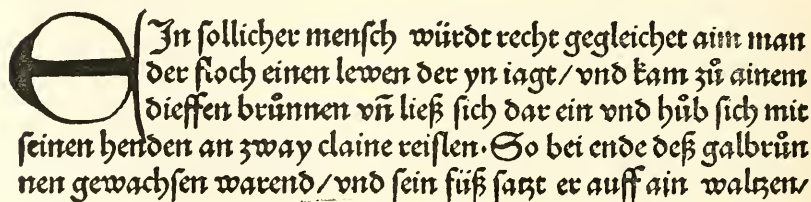 EJn ſollicher menſch würdt recht gegleichet aim man
der floch einen lewen der yn iagt/vnd kam zů ainem
dieffen brůnnen vñ ließ ſich dar ein vnd hůb ſich mit
ſeinen henden an zway claine reiſlen·So bei ende deß galbrůn
nen gewachſen warend/vnd ſein fůß ſatzt er auff ain waltzen/